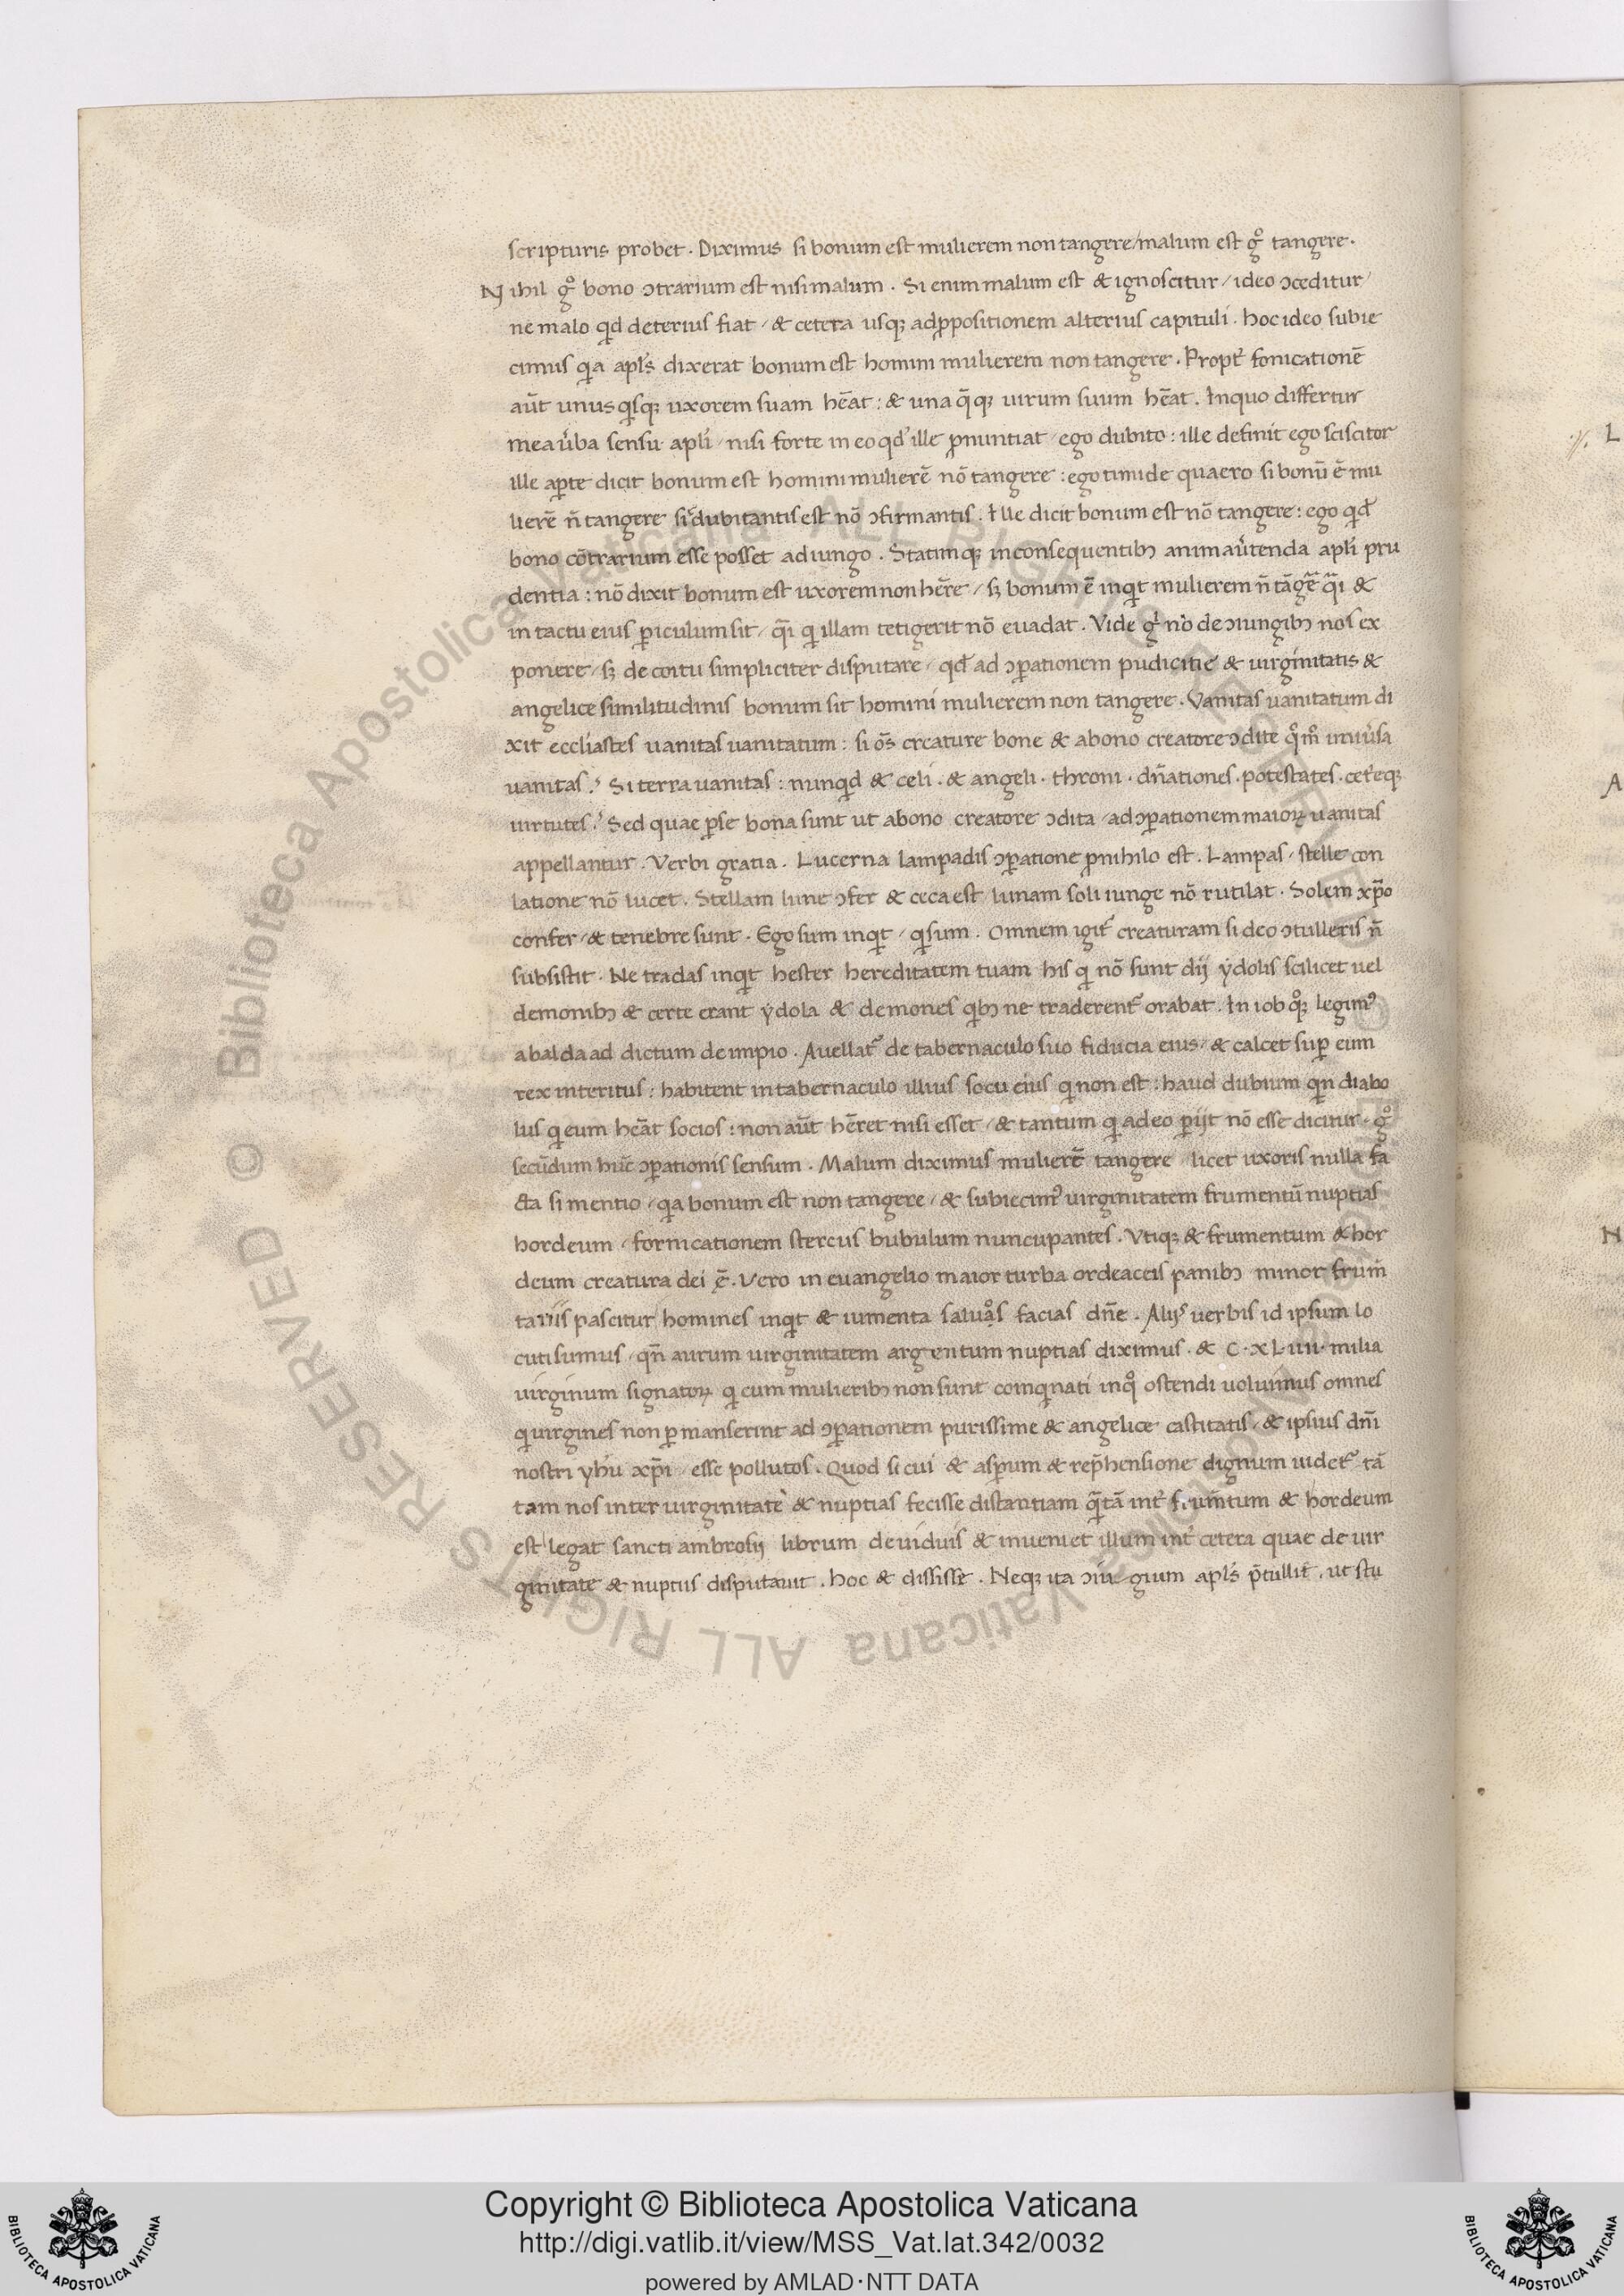 scripturis probet. Diximus si bonum est mulierem non tangere/malum est gͦ tangere.
Nihil gͦ bono ɔtrarium est nisi malum. Si enim malum est & ignoscitur/ideo ɔceditur/
ne malo qd deterius fiat/& cetera usqꝫ adꝓpositionem alterius capituli. hoc ideo subie
cimus qia apl̓s dixerat bonum est homini mulierem non tangere. Propt̓ fonicationē
aūt unus qisqꝫ uxorem suam hēat: & una q̄qꝫ uirum suum hēat. Inquo differtur
mea u̓ba sensu apl̓i/nisi forte in eo qd̓ ille ꝓnuntiat/ego dubito: ille definit ego sciscitor
ille aꝑte dicit bonum est homini mulierē nō tangere: ego timide quaero si bonū ē mu
lierē n̄ tangere si dubitantis est nō ɔfirmantis. Ille dicit bonum est nō tangere: ego qid
bono cōtrarium esse posset adiungo. Statimqꝫ inconsequentibꝫ animau̓tenda apl̓i pru
dentia: nō dixit bonum est uxorem non hēre/sꝫ bonum ē inqit mulierem n̄ tāgē q̄i &
in tactu eius ꝑiculum sit/q̄i qi illam tetigerit nō euadat. Vide gͥ nō de ɔiungibꝫ nos ex
ponere/sꝫ de coitu simpliciter disputare/qd ad ɔꝑationem pudicitie & uirginitatis &
angelice similitudinis bonum sit homini mulierem non tangere. Vanitas uanitatum di
xit eccl̓iastes uanitas uanitatum: si ōs creature bone & abono creatore ɔdite qͦm̊ uniu̓sa
uanitas? Si terra uanitas: nunqid & celi. & angeli. throni. dn̄ationes. potestates. cet̓eqꝫ
uirtutes? Sed quae ꝑse bona sunt ut abono creatore ɔdita/adɔꝑationem maioꝝ uanitas
appellantur. Verbi gratia. Lucerna lampadis ɔꝑatione ꝓnihilo est. Lampas/stelle con
latione nō lucet. Stellam lune ɔfer & ceca est/lunam soli iunge nō rutilat. Solem xp̄o
confer/& tenebre sunt. Ego sum inqit/qi sum. Omnem igit̓ creaturam si deo ɔtulleris n̄
subsistit. Ne tradas inqit hester hereditatem tuam his qi nō sunt dij ydolis scilicet uel
demonibꝫ & certe erant ydola & demones qibꝫ ne traderent̓ orabat. In iob qͦqꝫ legim᾽
abaldaad dictum de impio. Auellat̓ de tabernaculo suo fiducia eius/& calcet suꝑ eum
rex interitus: habitent in tabernaculo illius socii eius qi non est: haud dubium qin diabo
lus qi eum hēat socios: non aūt hēret nisi esset/& tantum qi adeo ꝑijt nō esse dicitur. gͦ
secūdum huc̄ ɔꝑationis sensum. Malum diximus mulierē tangere licet uxoris nulla fa
cta si mentio/qia bonum est non tangere/& subiecim᾽ uirginitatem frumentū nuptias
hordeum/fornicationem stercus bubulum nuncupantes. Vtiqꝫ & frumentum & hor
deum creatura dei ē. Vero in euangelio maior turba ordeaceis panibꝫ minor frum̄
tariis pascitur/homines inqit & iumenta saluaͦs facias dn̄e. Alijs uerbis id ipsum lo
cuti sumus/qn̄ aurum uirginitatem argentum nuptias diximus. & C.xL.iiii. milia
uirginum signatoꝝ qi cum mulieribꝫ non sunt coinqinati inqͦ ostendi uoluimus omnes
qi uirgines non ꝑmanserint ad ɔꝑationem purissime & angelice castitatis/& ipsius dn̄i
nostri yhū xp̄i/esse pollutos. Quod si cui & asꝑum & rep̄hensione dignum uidet̓ tā
tam nos inter uirginitatē & nuptias fecisse distantiam q̄tā int̓ frum̄tum & hordeum
est legat sancti ambrosij librum de uiduis & inueniet illum int̓ cetera quae de uir
ginitate & nuptiis disputauit. Hoc & dississe. Neqꝫ ita ɔiu gium apl̓s p̄tullit. ut stu
L
A
N
Copyright © Biblioteca Apostolica Vaticana
http://digi.vatlib.it/view/MSS_Vat.lat.342/0032
powered by AMLAD·NTT DATA